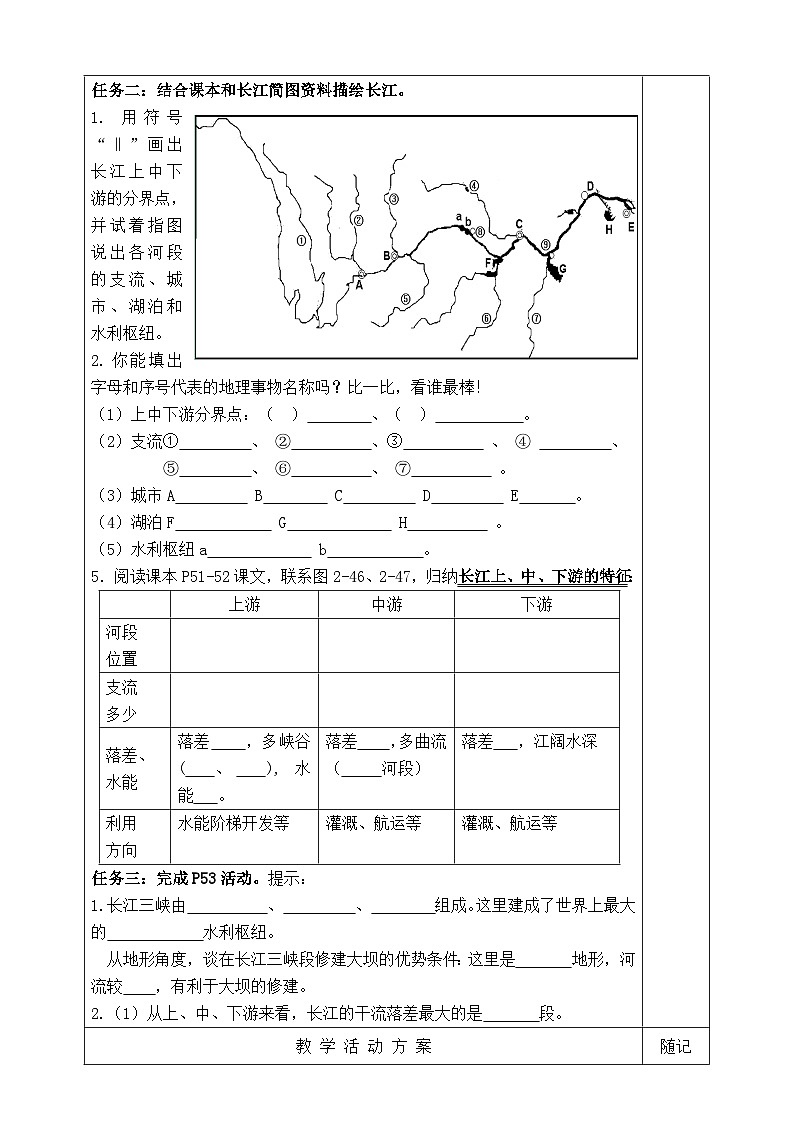 任务二：结合课本和长江简图资料描绘长江。
1. 用符号
“‖”画出
长江上中下
游的分界点，
并试着指图
说出各河段
的支流、城
市、湖泊和
水利枢纽。
① ② ③ ④ ⑤ ⑥ ⑦ ⑧ ⑨
A B C D E F G H a b
2. 你能填出
字母和序号代表的地理事物名称吗？比一比，看谁最棒！
（1）上中下游分界点：（ ）________、（ ）___________。
（2）支流①_________、 ②__________、③__________ 、 ④ _________、
⑤_________、 ⑥__________、 ⑦__________ 。
（3）城市 A_________ B________ C_________ D_________ E_______。
（4）湖泊 F____________ G_____________ H__________ 。
（5）水利枢纽 a_____________ b____________。
5. 阅读课本 P51-52 课文，联系图 2-46、2-47，归纳长江上、中、下游的特征：
上游 中游 下游
河段
位置
支流
多少
落差、
水能
落差____，多峡谷
(___、 ___), 水
能___。
落差____，多曲流
（_____河段）
落差___，江阔水深
利用
方向
水能阶梯开发等 灌溉、航运等 灌溉、航运等
任务三：完成 P53 活动。提示：
1.长江三峡由__________、_________、________组成。这里建成了世界上最大
的____________水利枢纽。
从地形角度，谈在长江三峡段修建大坝的优势条件：这里是_______地形，河
流较____，有利于大坝的修建。
2.（1）从上、中、下游来看，长江的干流落差最大的是_______段。
教 学 活 动 方 案 随记